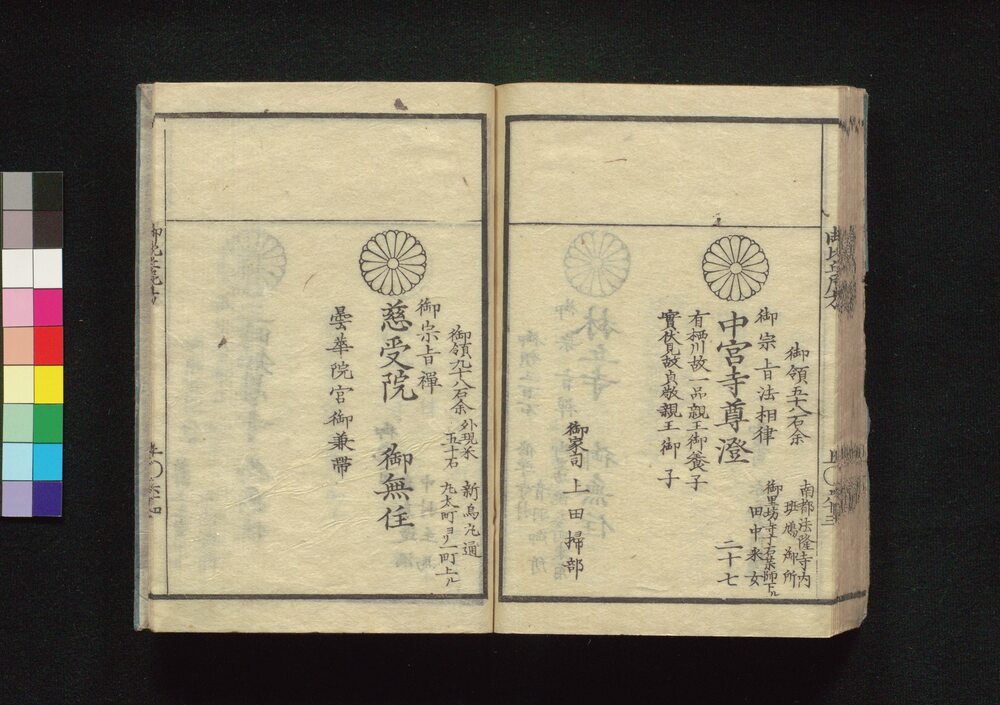 御領五十八石余
南都法隆寺内
斑鳩御所
御宗旨法相律
御里坊寺子石薬師下ル
田中来女
中宮寺尊澄
二十七
有栖川故一品親王御養子
實伏見故貞敬親王御子
御家司
上田掃部
御領九十八石余
外現米
五十石
新烏丸通
丸太町ヨリ一町上ル
御宗旨禅
慈受院
御無住
曇華院宮御兼帯